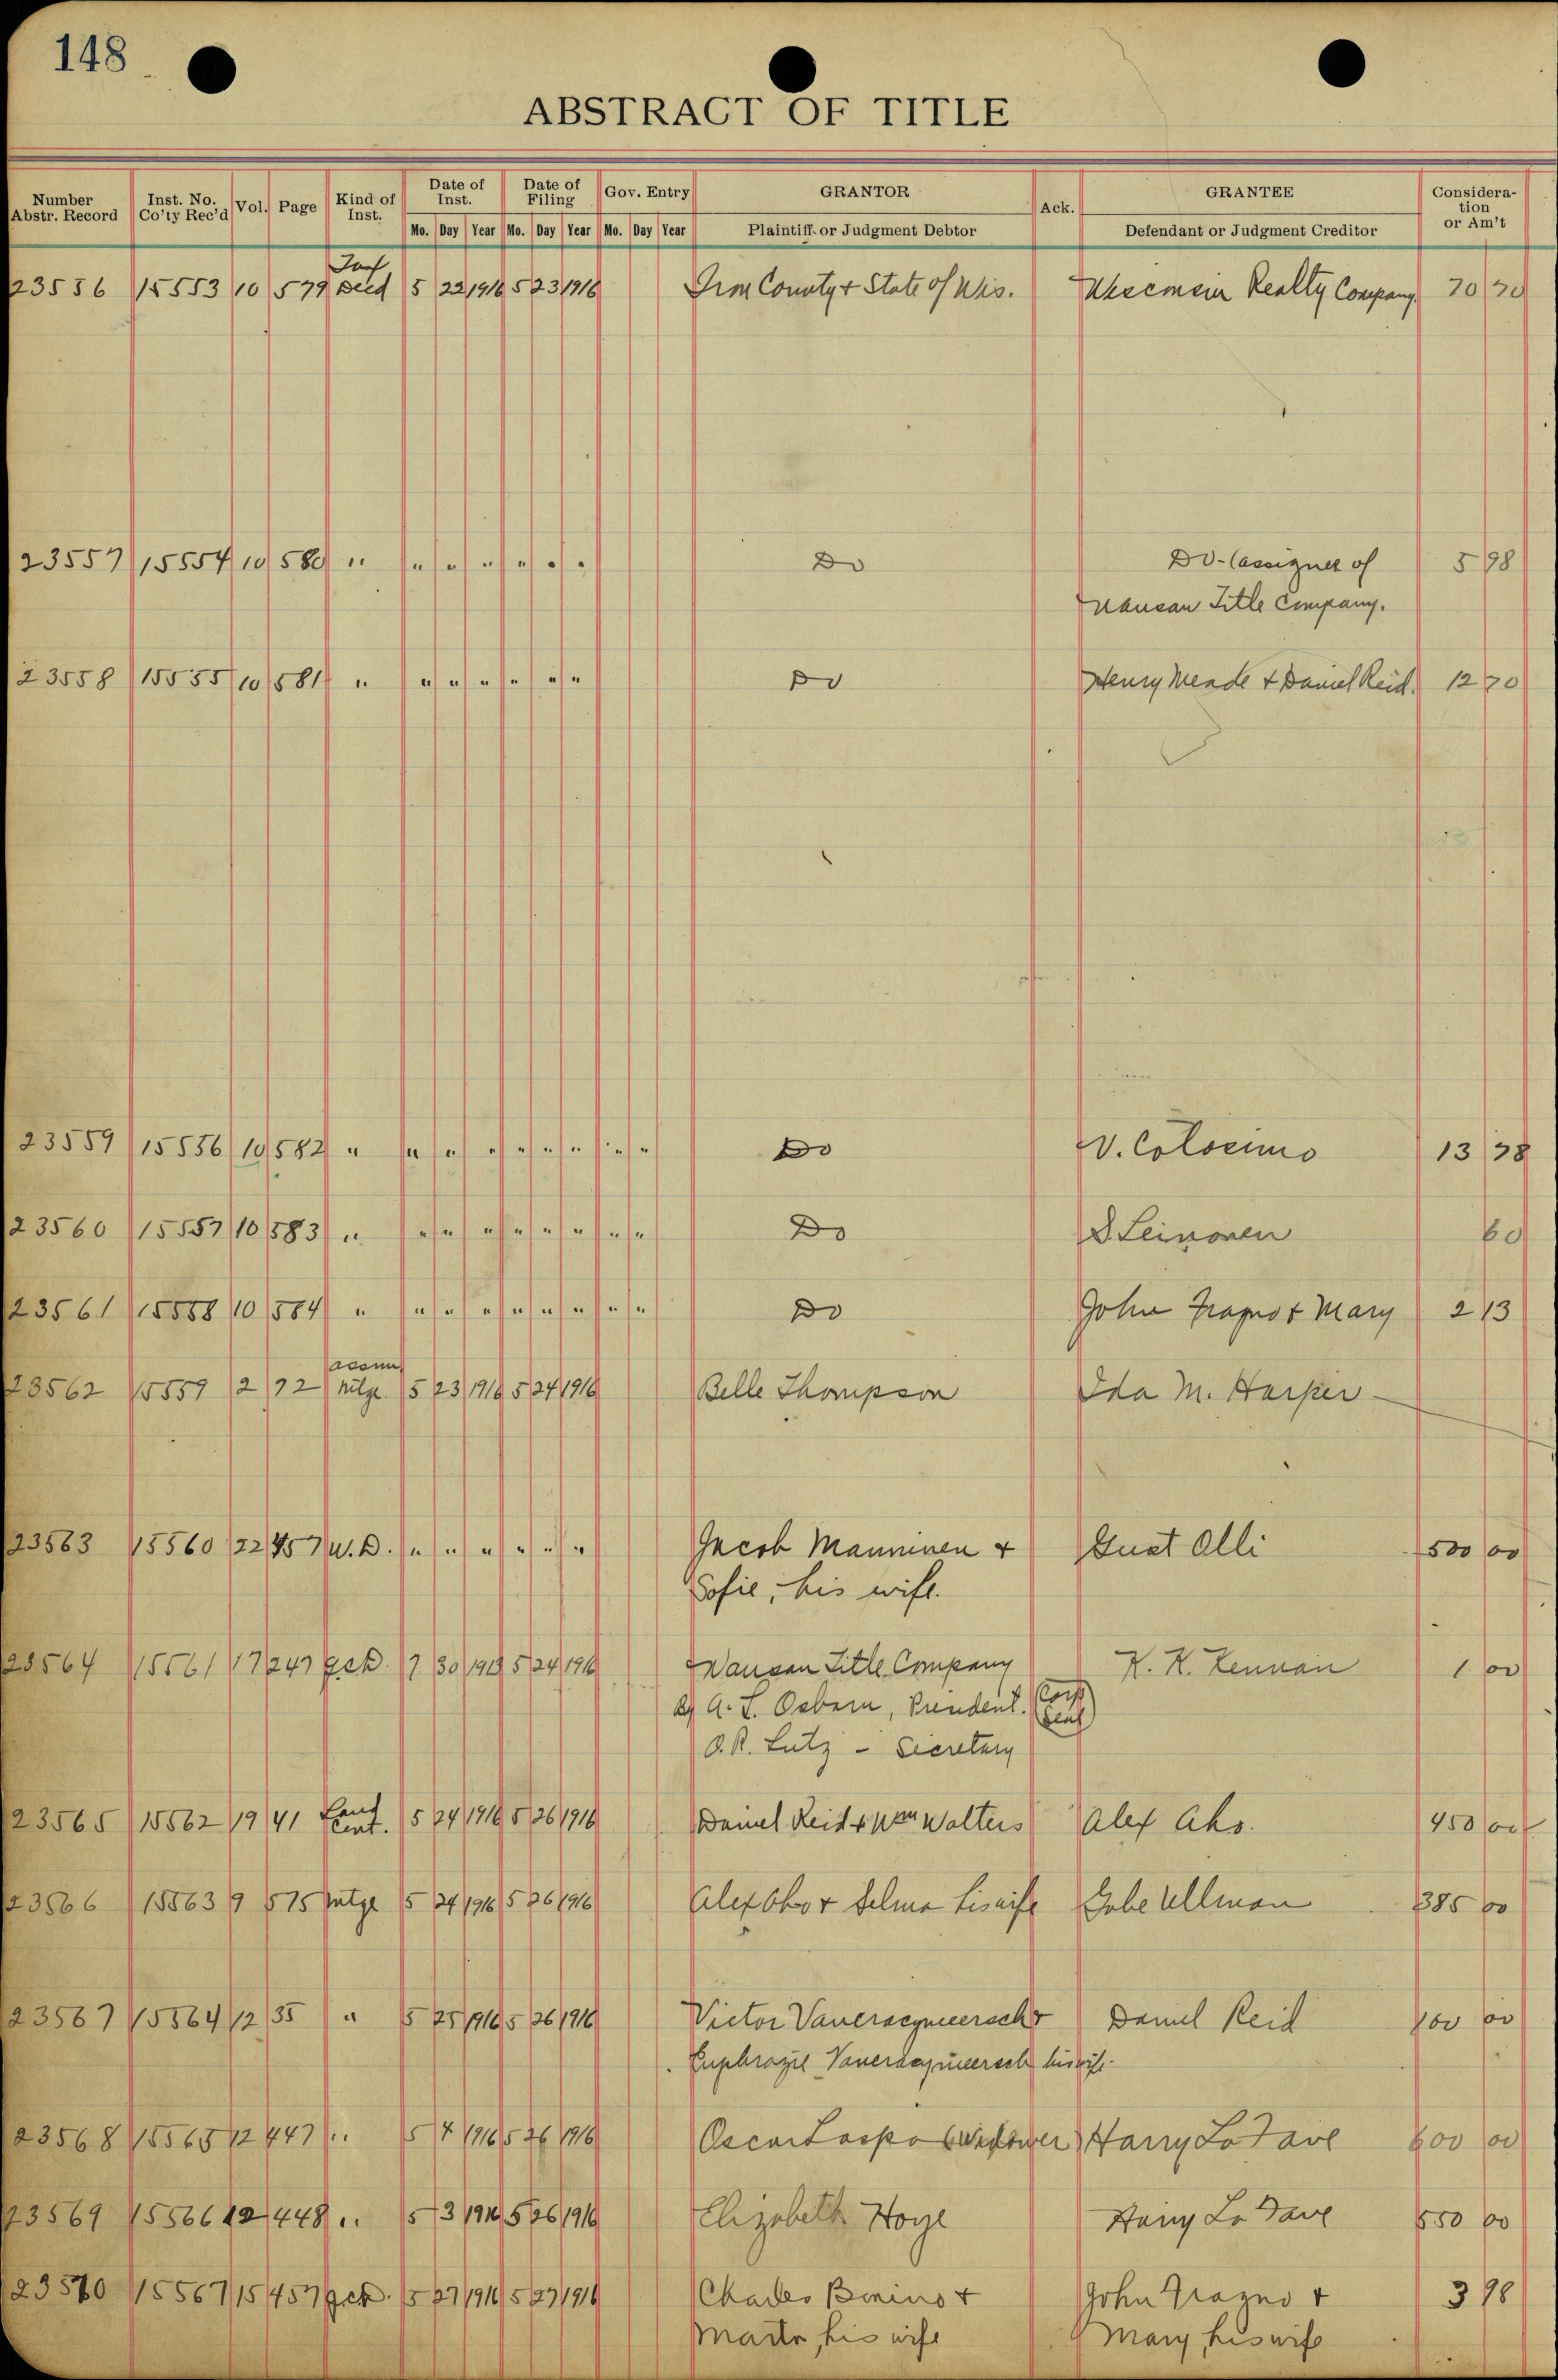 148
ABSTRACT OF TITLE
Number Abstr. Record Inst. No. Co'ty Rec'd Vol. Page Kind of Inst. Date of Inst. Date of Filing Gov. Entry GRANTOR Ack. GRANTEE Consideration or Am't
Mo. Day Year Mo. Day Year Mo. Day Year Plaintiff or Judgment Debtor Defendant or Judgment Creditor
Tax
23556 15553 10 579 Deed 5 22 1916 5 23 1916 Iron County & State of Wis. Wisconsin Realty Company 70 70
23557 15554 10 580 " " " " " " " Do Do- (assignee of 5 98
Wausau Title Company.
23558 15555 10 581 " " " " " " " Do Henry Meade & Daniel Reid. 12 70
23559 15556 10 582 " " " " " " " " " Do V. Colosimo 13 78
23560 15557 10 583 " " " " " " " " " Do S Leinonen 60
23561 15558 10 584 " " " " " " " " " Do John Fragno & Mary 2 13
assn
23562 15559 2 72 mtge. 5 23 1916 5 24 1916 Belle Thompson Ida M. Harper -
23563 15560 22 457 W.D. " " " " " " Jacob Manninen & Gust Olli 500 00
Sofie, his wife.
23564 15561 17 247 qcd. 7 30 5 24 1916 Wausau Title Company K. K. Kennan 1 00
By A. L. Osborn, President. (Corp Seal)
O.R. Lutz - Secretary
23565 15562 19 41 Land Cont. 5 24 1916 5 26 1916 Daniel Reid & Wm Walters Alex Aho. 450 00
23566 15563 9 575 mtge 5 24 1916 5 26 1916 Alex Aho & Selma his wife Gabe Ullman 385 00
23567 15564 12 35 " 5 25 1916 5 26 1916 Victor & Daniel Reid 100 00
his wife.
23568 15565 12 447 " 5 4 1916 5 26 1916 Oscar (widower) Harry La Fave 600 00
23569 15566 12 448 " 5 3 1916 5 26 1916 Elizabeth Hoye Harry La Fave 550 00
23570 15567 15 457 qcd. 5 27 1916 5 27 1916 Charles Bonino & John Fragno & 3 98
his wife Mary, his wife